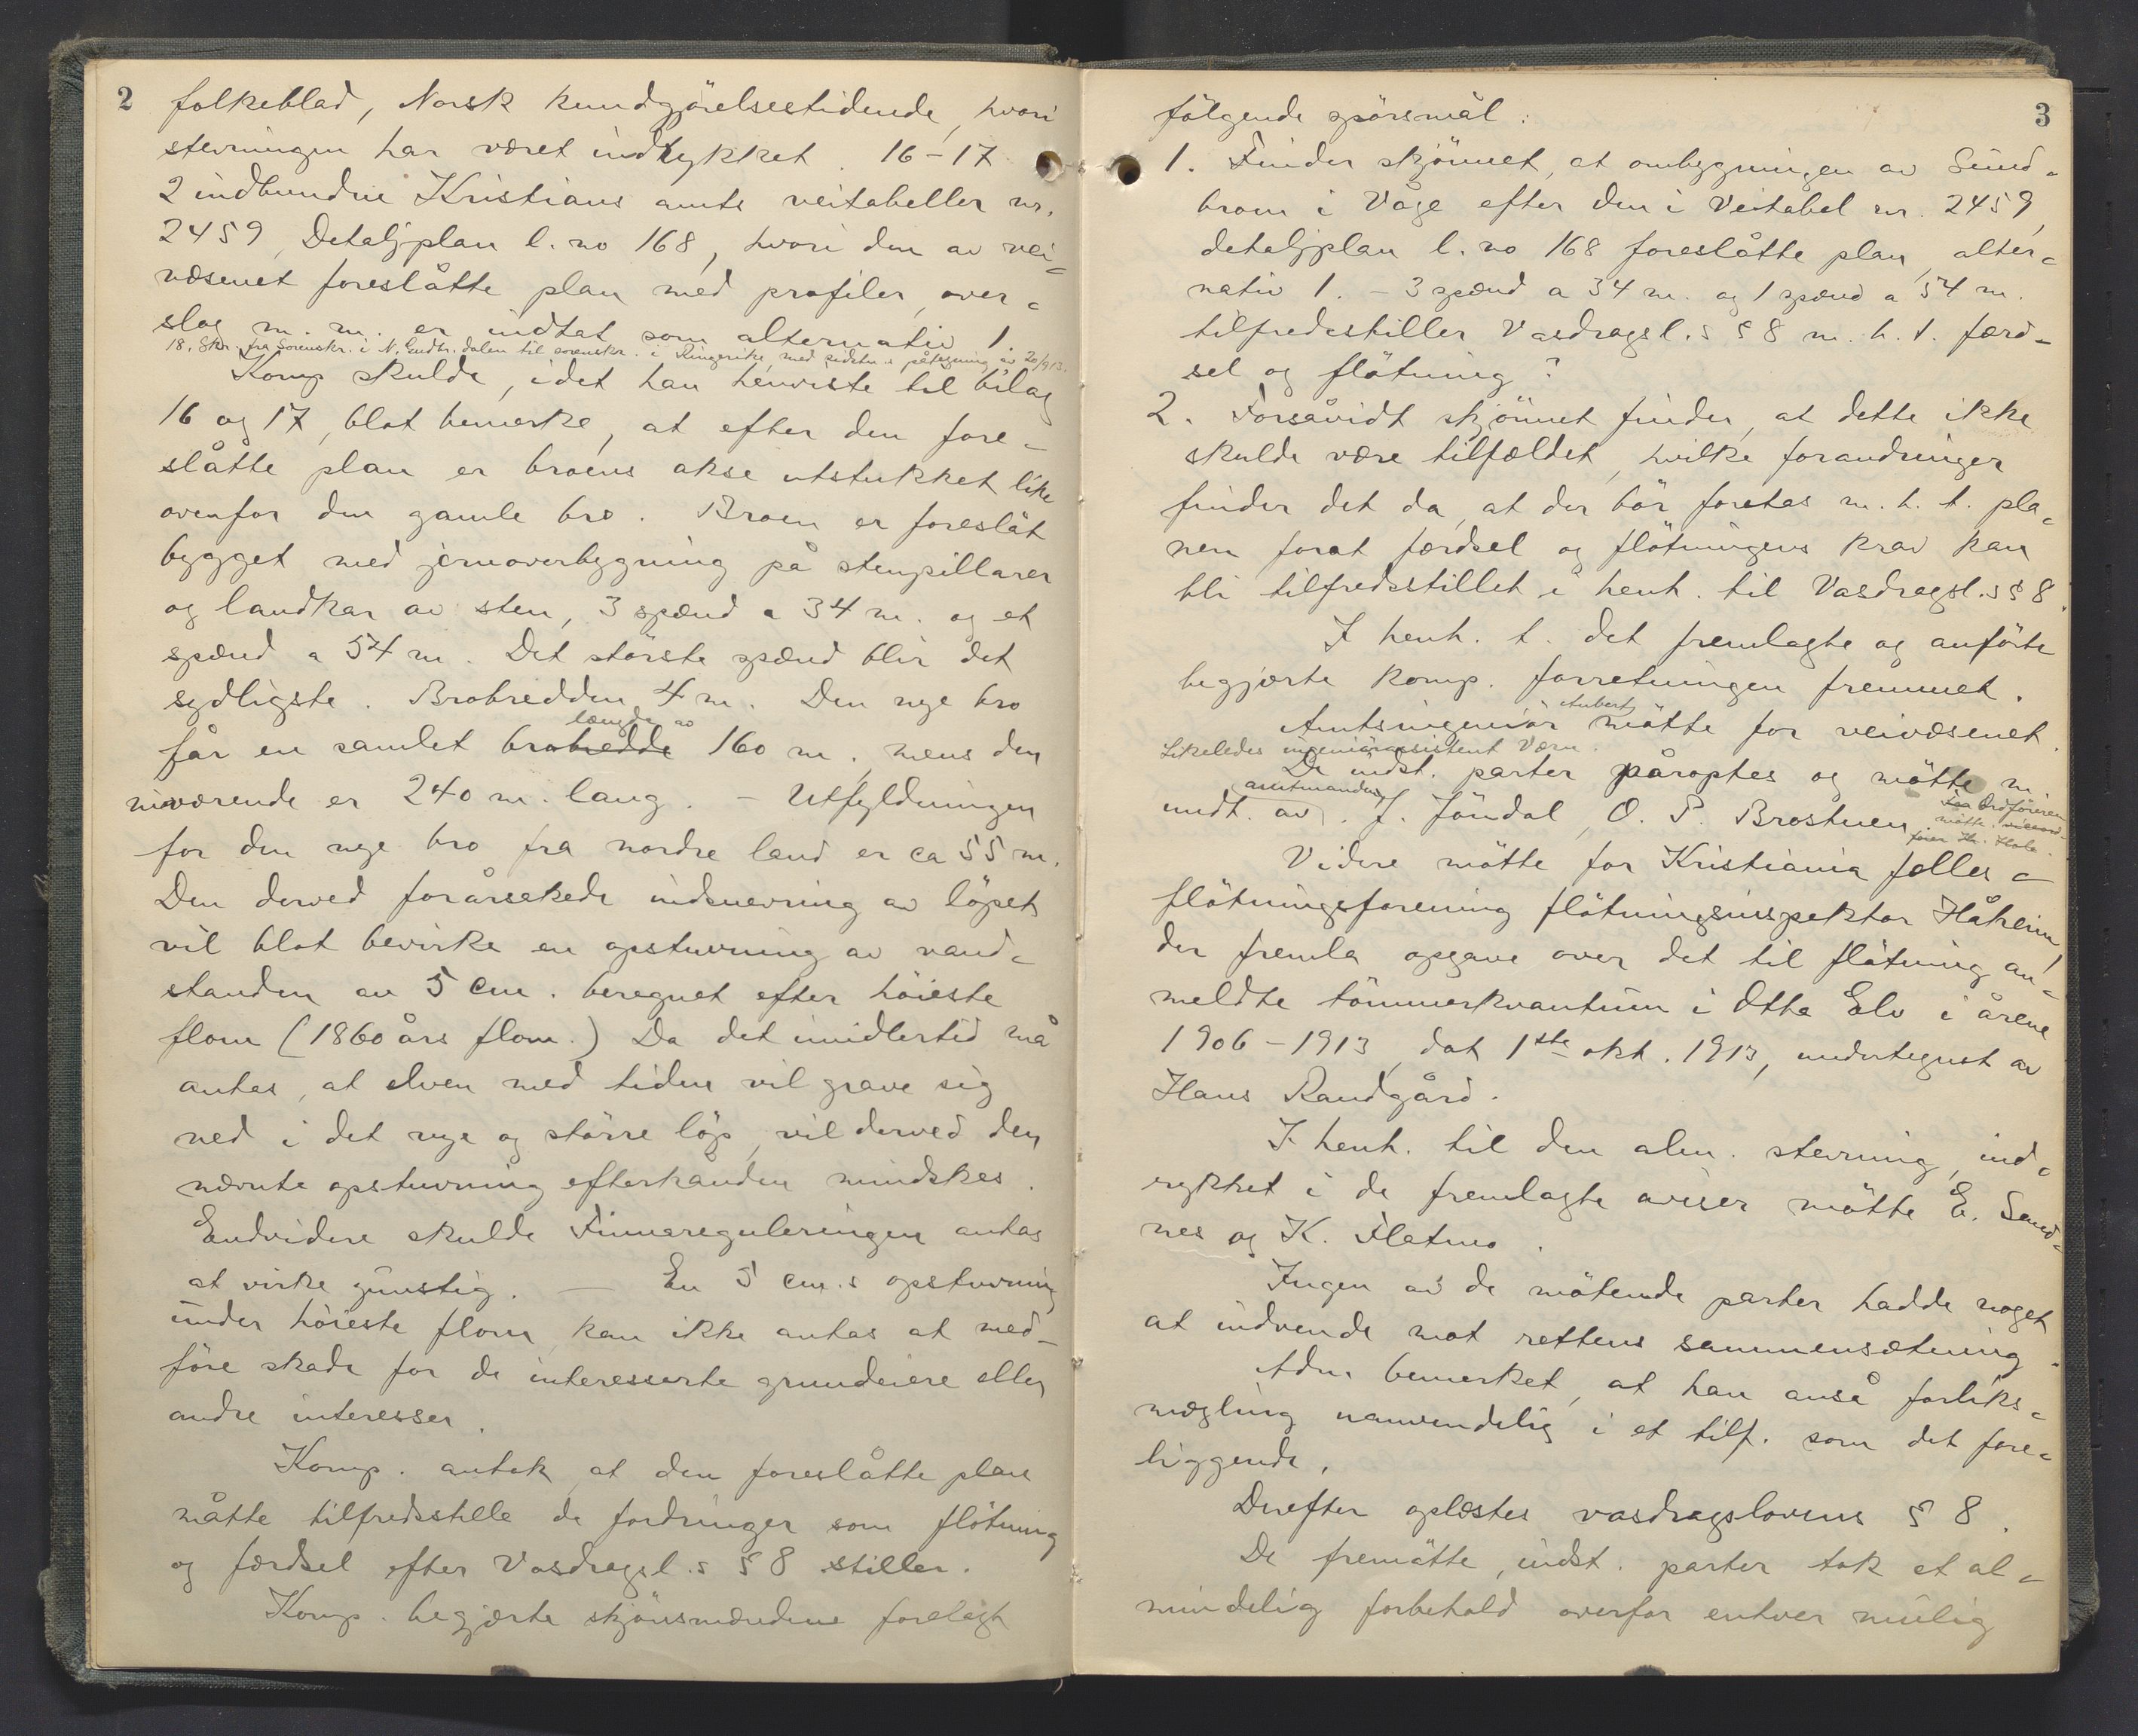 2
folkeblad, Norsk kundgjörelsestidende, hvori
stevningen har været indrykket. 16-17
2 indbundne Kristians amts veitabeller nr.
2459, Detaljplan l. no 168, hvori den av vei=
væsenet foreslåtte plan med profiler, over=
slag m. m. er indtat som alternativ 1.
18. Skr. fra Sorenskr. i N. Gudbr.dalen til sorenskr. i Ringerike, med sidstn.s påtegning av 20/9 13.
Komp skulde, idet han henviste til bilag
16 og 17, blot bemerke, at efter den fore=
slåtte plan er broens akse utstukket like
ovenfor den gamle bro. Broen er foreslåt
bygget med jernoverbygning på stenpillarer
og landkar av sten, 3 spænd a 34 m. og et
spænd a 54 m. Det störste spænd blir det
sydligste. Brobredden 4 m. Den nye bro
længde av
får en samlet brobredde 160 m. mens den
nuværende er 240 m. lang. - Utfyldningen
for den nye bro fra nordre land er ca 55 m.
Den derved forårsakede indsnevring av löpet
vil blot bevirke en opstuvning av vand=
standen av 5 cm. beregnet efter höieste
flom (1860 års flom.) Da det imidlertid må
antas, at elven med tiden vil grave sig
ned i det nye og större löp, vil derved den
nævnte opstuvning efterhånden mindskes.
Endvidere skulde Finnareguleringen antas
at virke gunstig. — En 5 cm.s opstuvning
under höieste flom kan ikke antas at med=
före skade for de interesserte grundeiere eller
andre interesser.
Komp. antok, at den foreslåtte plan
måtte tilfredsstille de fordringer som flötning
og færdsel efter Vasdragsl.s § 8 stiller.
Komp. begjærte skjönsmændene forelagt
3
fölgende spörsmål:
1. Finder skjönnet, at ombygningen av Sund=
broen i Våge efter den i Veitabel nr. 2459,
detaljplan l. no 168 foreslåtte plan, alter=
nativ 1. - 3 spænd a 34 m. og 1 spænd a 54 m.
tilfredsstiller Vasdragsl.s § 8 m. h. t. færd=
sel og flötning?
2. Forsåvidt skjönnet finder, at dette ikke
skulde være tilfældet, hvilke forandringer
finder det da, at der bör foretas m. h. t. pla=
nen forat færdsel og flötningens krav kan
bli tilfredsstillet i henh. til Vasdragsl.s § 8.
I henh. t. det fremlagte og anförte
begjærte komp. forretningen fremmet.
Aubert
Amtsingeniör mötte for veivæsenet.
Likeledes ingeniörassistent Værn.
De indst. parter påroptes og mötte
amtmanden
undt. av J. Jöndal, O. P. Brostuen
Ordföreren
mötte
Videre mötte for Kristiania felles=
flötningsforening flötningsinspektör Håheim,
der fremla opgave over det til flötning an=
meldte tömmerkvantum i Otta Elv i årene
1906-1913, dat 1ste okt. 1913, undertegnet av
Hans Randgård.
I henh. til den alm. stevning, ind=
rykket i de fremlagte aviser mötte E. Sand=
nes og K. Flatmo.
Ingen av de mötende parter hadde noget
at indvende mot rettens sammensætning.
Adm. bemerket, at han anså forliks=
mægling uanvendelig i et tilf. som det fore=
liggende.
Derefter oplæstes vasdragslovens § 8.
De fremötte, indst. parter tok et al=
mindelig forbehold overfor enhver mulig